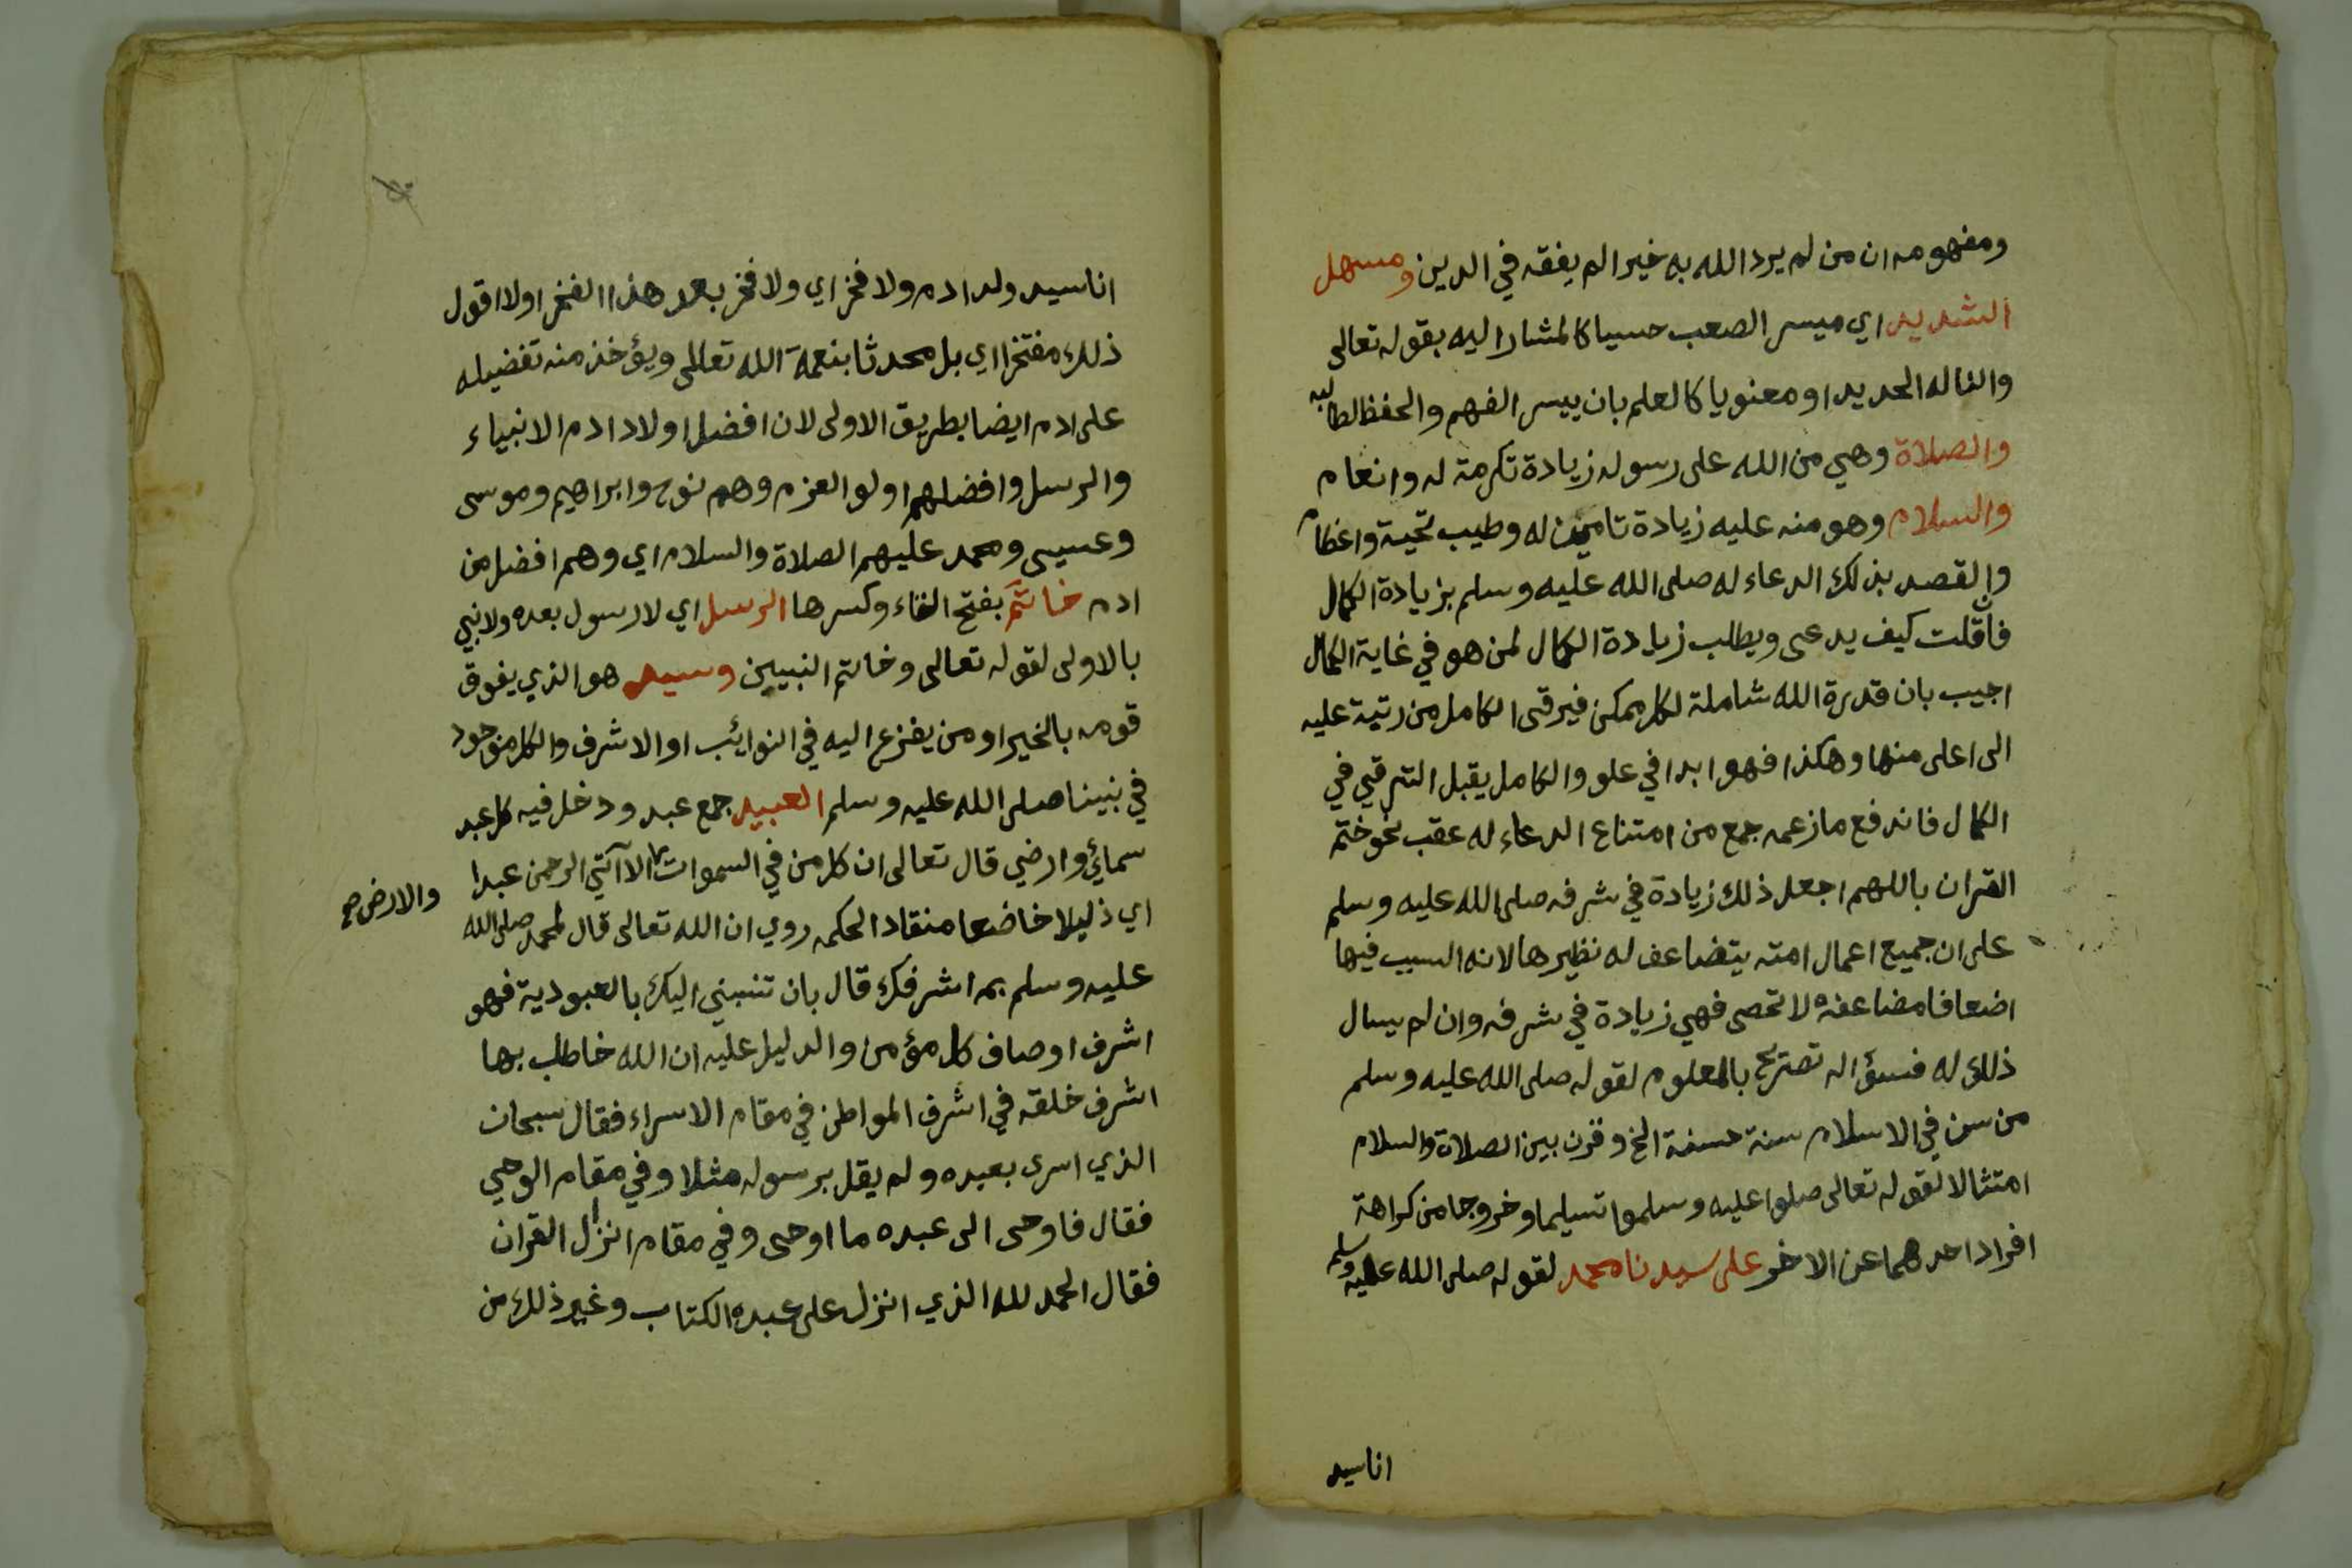 ومفهومه ان من لم يرد الله به خيرا لم يفقه في الدين ومسهل
الشديد اي ميسر الصعب حسيا كالمشار اليه بقوله تعالى
والنا له الحديد او معنويا كالعلم بان ييسر الفهم والحفظ لطالبه
والصلاة وهي من الله على رسوله زيادة تكرمة له وانعام
والسلام وهو منه عليه زيادة تامين له وطيب تحية واعظام
والقصد بذلك الدعاء له صلى الله عليه وسلم بزيادة الكمال
فان قلت كيف يدعى ويطلب زيادة الكمال لمن هو في غاية الكمال
اجيب بان قدرة الله شاملة لكل ممكن فيرقى الكامل من رتبة عليه
الى اعلى منها وهكذا فهو ابدا في علو والكامل يقبل الترقي في
الكمال فاندفع ما زعمه جمع من امتناع الدعاء له عقب نحو ختم
القران باللهم اجعل ذلك زيادة في شرفه صلى الله عليه وسلم
على ان جميع اعمال امته يتضاعف له نظيرها لانه السبب فيها
اضعافا مضاعفة لا تحصى فهي زيادة في شرفه وان لم يسال
ذلك له فسؤاله تصريح بالمعلوم لقوله صلى الله عليه وسلم
من سن في الاسلام سنة حسنة الخ وقرن بين الصلاة والسلام
امتثالا لقوله تعالى صلوا عليه وسلموا تسليما وخروجا من كراهة
افراد احدهما عن الاخر على سيدنا محمد لقوله صلى الله عليه وسلم
انا سيد
انا سيد ولد ادم ولا فخر اي ولا فخر بعد هذا الفخر او لا اقول
ذلك مفتخرا اي بل محدثا بنعمة الله تعالى ويؤخذ منه تفضيله
على ادم ايضا بطريق الاولى لان افضل اولاد ادم الانبياء
والرسل وافضلهم اولو العزم وهم نوح وابراهيم وموسى
وعيسى ومحمد عليهم الصلاة والسلام اي وهم افضل من
ادم خاتم بفتح التاء وكسرها الرسل اي لا رسول بعده ولا نبي
بالاولى لقوله تعالى وخاتم النبيين وسيد هو الذي يفوق
قومه بالخير او من يفزع اليه في النوائب او الاشرف والكل موجود
في نبينا صلى الله عليه وسلم العبيد جمع عبد ودخل فيه كل عبد
سمائي وارضي قال تعالى ان كل من في السموات الا آتي الرحمن عبدا
والارض صح
اي ذليلا خاضعا منقادا لحكمه روي ان الله تعالى قال لمحمد صلى الله
عليه وسلم بم اشرفك قال بان تنسبني اليك بالعبودية فهو
اشرف اوصاف كل مؤمن والدليل عليه ان الله خاطب بها
اشرف خلقه في اشرف المواطن في مقام الاسراء فقال سبحان
الذي اسرى بعبده ولم يقل برسوله مثلا وفي مقام الوحي
فقال فاوحى الى عبده ما اوحى وفي مقام انزال القران
فقال الحمد لله الذي انزل على عبده الكتاب وغير ذلك من